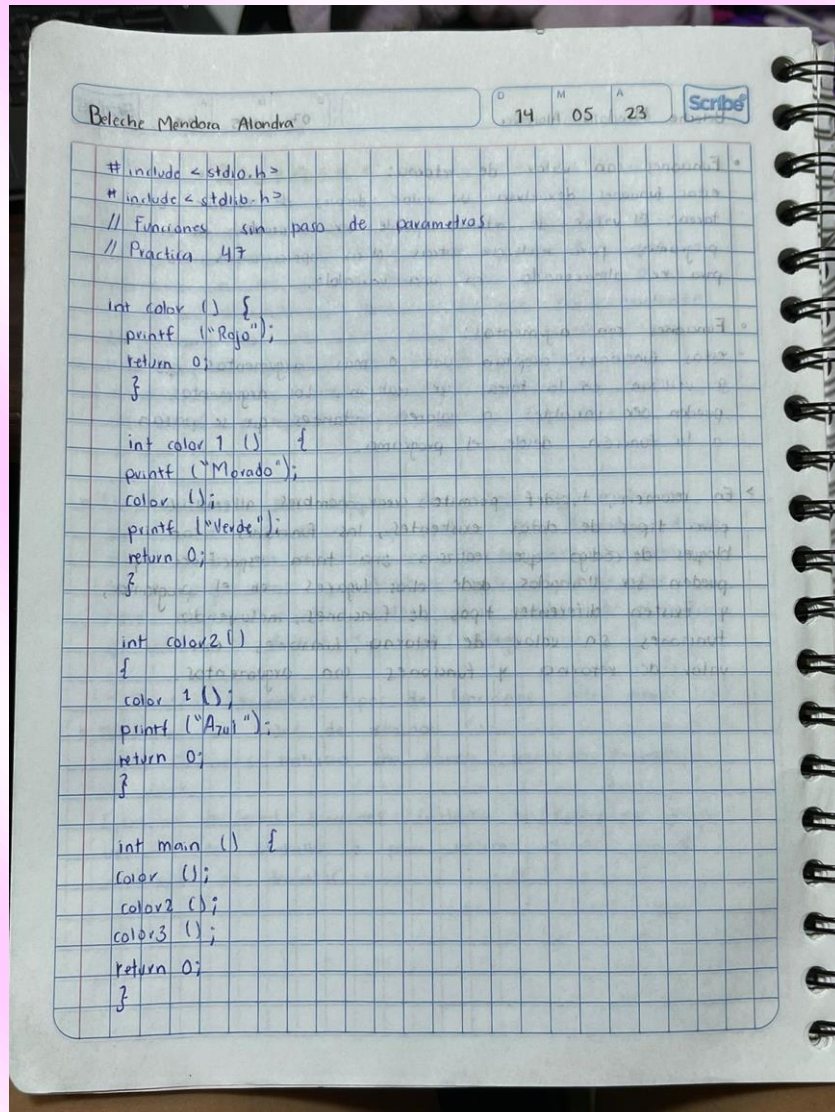 Beleche Mendoza Alondra
D M A
14 05 23
Scribe
# include < stdio.h>
# include < stdlib.h>
// Funciones sin paso de parametros
// Practica 47
int color () {
printf ("Rojo");
return 0;
}
int color 1 () {
printf ("Morado");
color ();
printf ("Verde");
return 0;
}
int color2 ()
{
color 1 ();
printf ("Azul");
return 0;
}
int main () {
color ();
color2 ();
color3 ();
return 0;
}